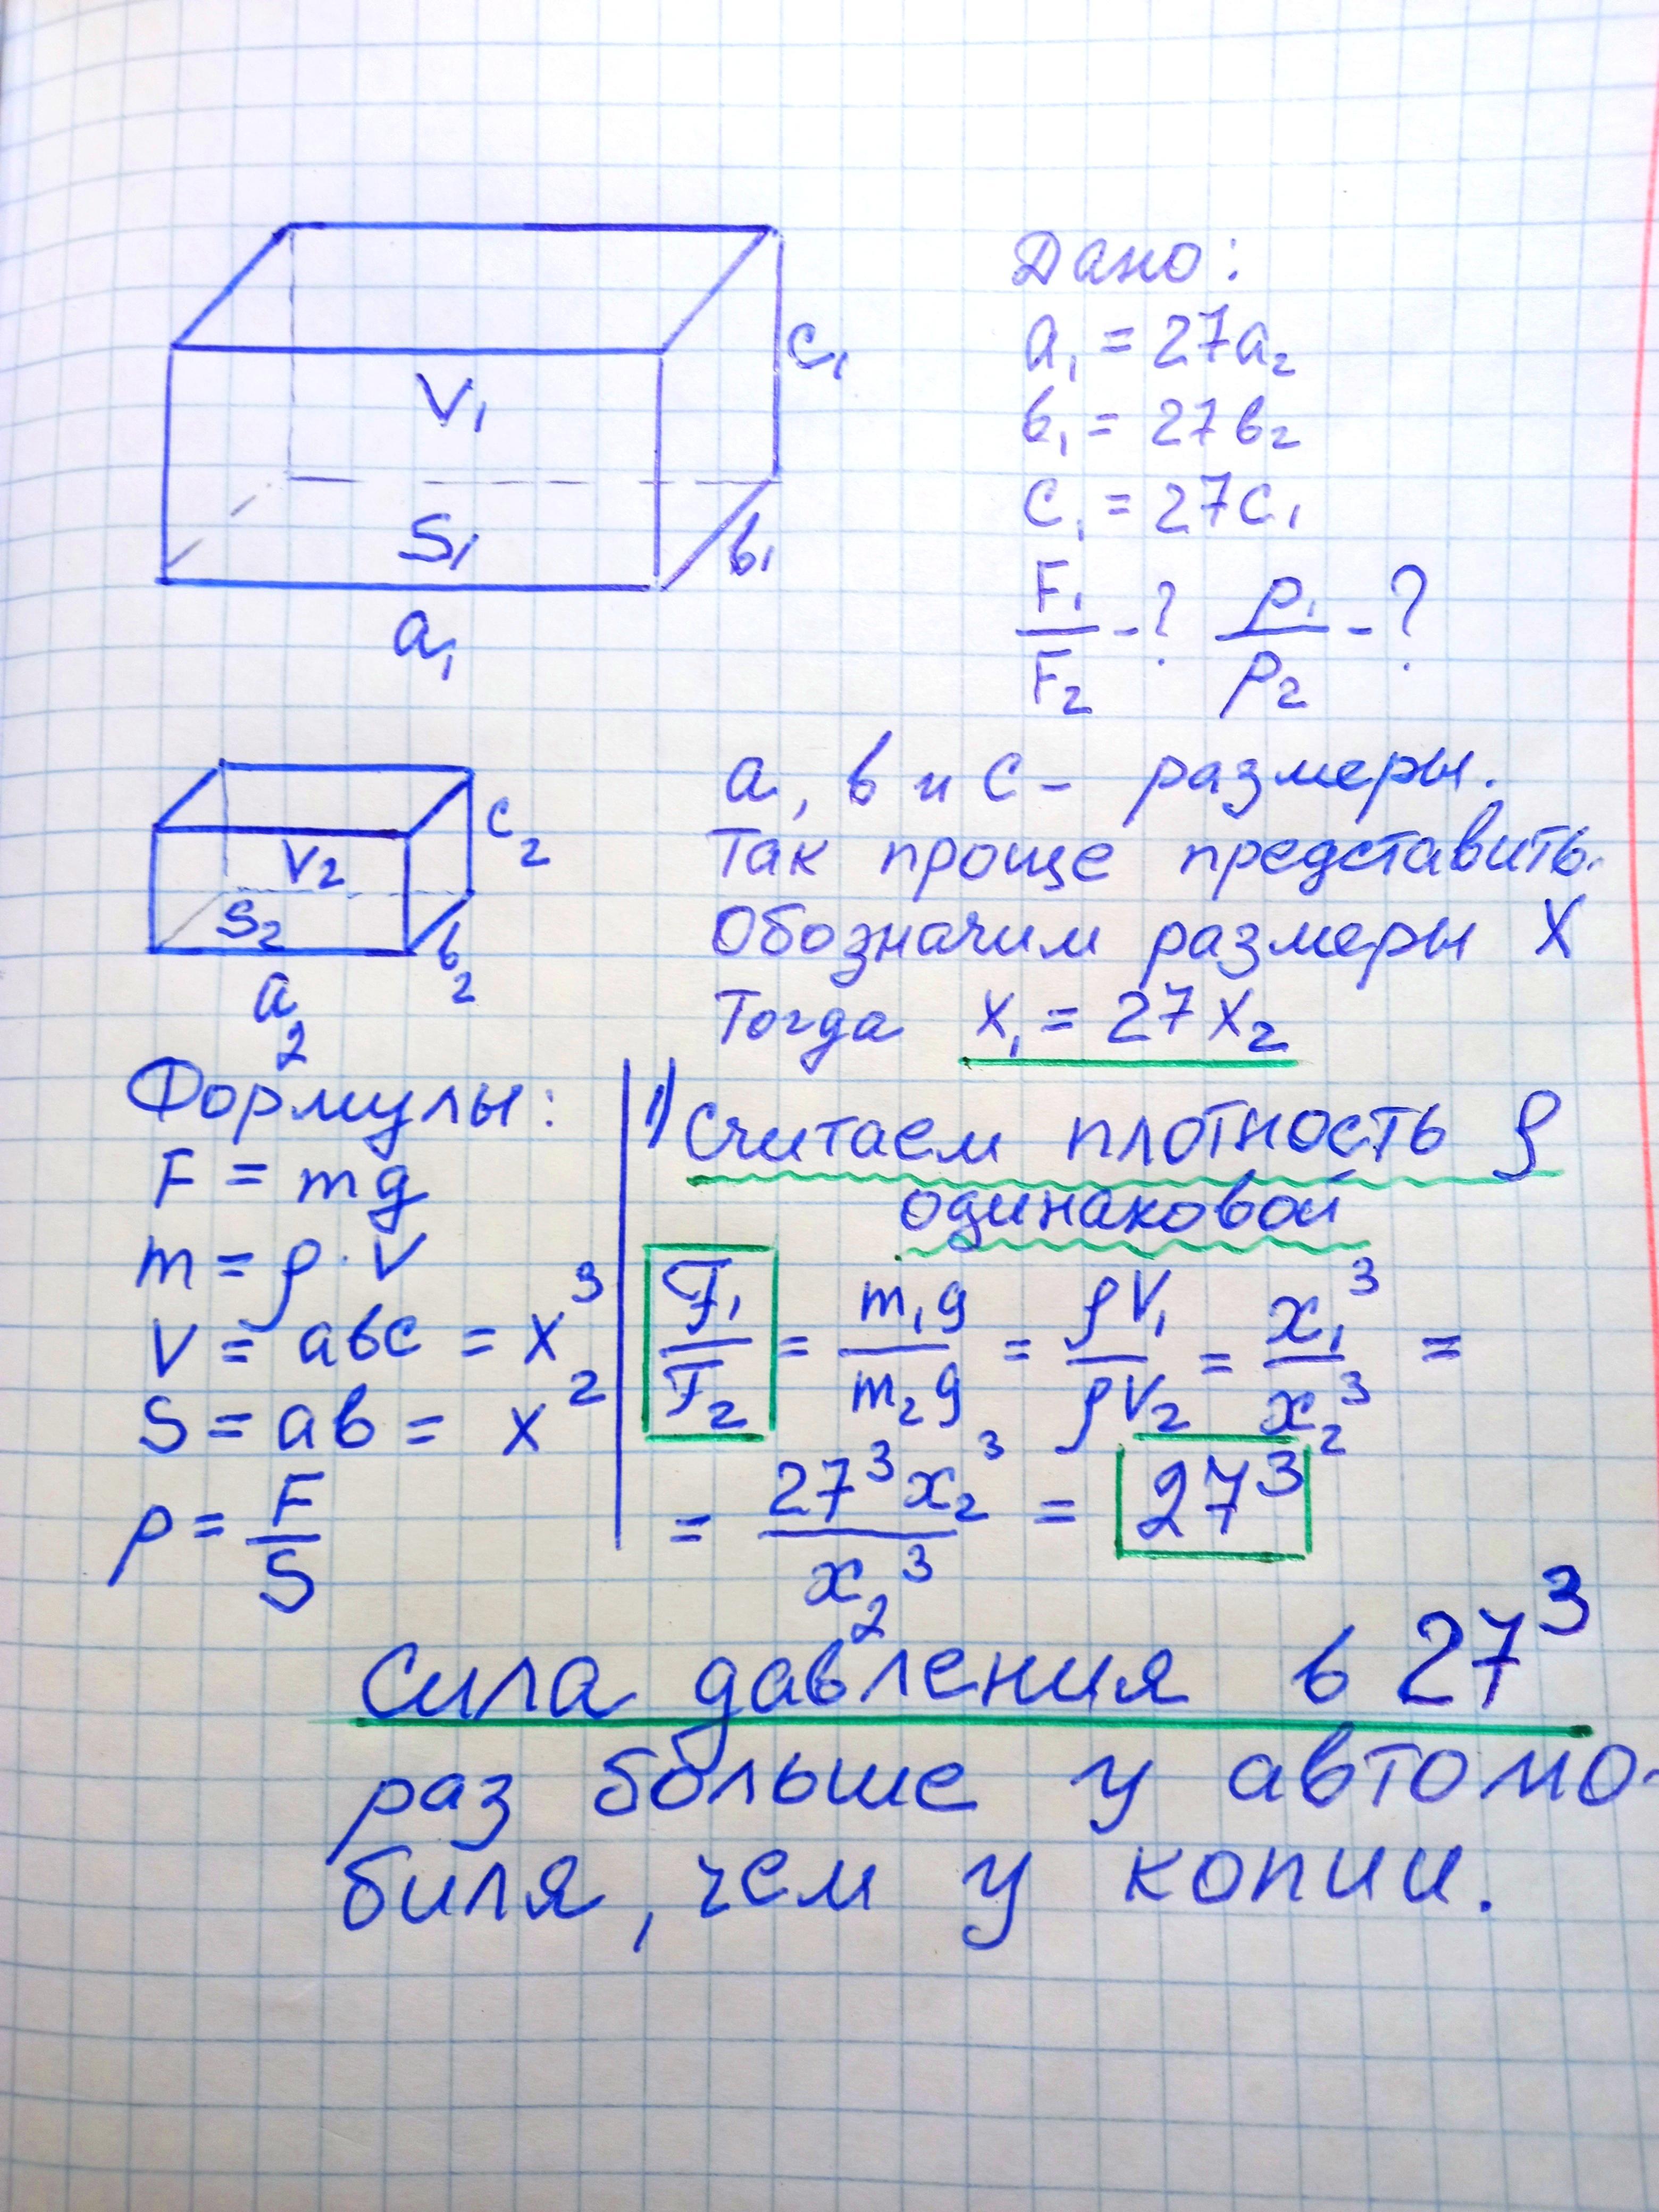 V₁
S₁
a₁
в₁
c₁
Дано:
a₁ = 27a₂
в₁ = 27в₂
c₁ = 27c₁
F₁/F₂ - ? p₁/p₂ - ?
V₂
S₂
a₂
в₂
c₂
а, в и с - размеры.
Так проще представить.
Обозначим размеры X
Тогда x₁ = 27x₂
Формулы:
F = mg
m = ρ · V
V = aвc = x³
S = aв = x²
p = F/S
1) Считаем плотность ρ
одинаковой
F₁/F₂ = m₁g/m₂g = ρV₁/ρV₂ = x₁³/x₂³ =
= 27³x₂³/x₂³ = 27³
Сила давления в 27³
раз больше у автомо-
биля, чем у копии.